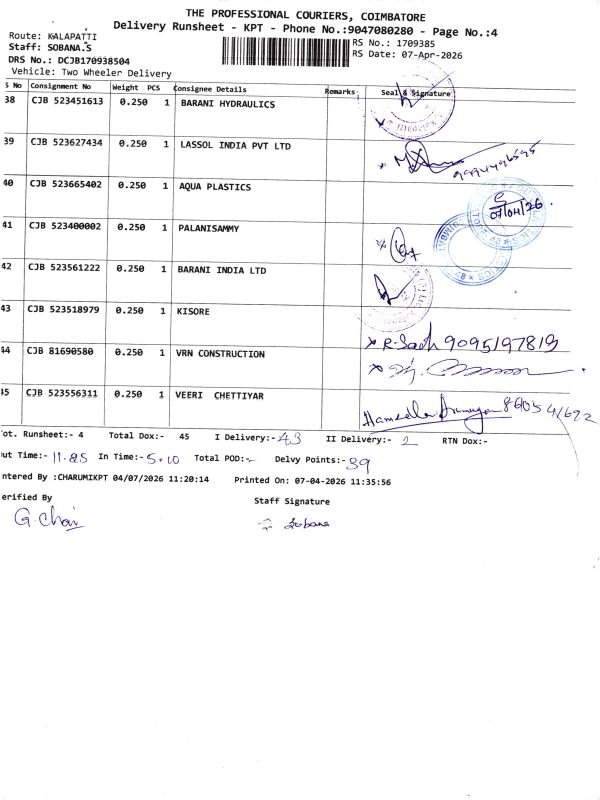 THE PROFESSIONAL COURIERS, COIMBATORE
Delivery Runsheet - KPT - Phone No.:9047080280 - Page No.:4
Route: KALAPATTI
Staff: SOBANA.S
DRS No.: DCJB170938504
Vehicle: Two Wheeler Delivery
RS No.: 1709385
RS Date: 07-Apr-2026
S No Consignment No Weight PCS Consignee Details Remarks Seal & Signature
38 CJB 523451613 0.250 1 BARANI HYDRAULICS
39 CJB 523627434 0.250 1 LASSOL INDIA PVT LTD
40 CJB 523665402 0.250 1 AQUA PLASTICS 07/04/26
41 CJB 523400002 0.250 1 PALANISAMMY
42 CJB 523561222 0.250 1 BARANI INDIA LTD
43 CJB 523518979 0.250 1 KISORE 9095197819
44 CJB 81690580 0.250 1 VRN CONSTRUCTION
45 CJB 523556311 0.250 1 VEERI CHETTIYAR
ot. Runsheet:- 4 Total Dox:- 45 I Delivery:- 43 II Delivery:- 2 RTN Dox:-
ut Time:- 11.25 In Time:- 5.10 Total POD:- Delvy Points:- 39
ntered By :CHARUMIKPT 04/07/2026 11:20:14 Printed On: 07-04-2026 11:35:56
erified By Staff Signature